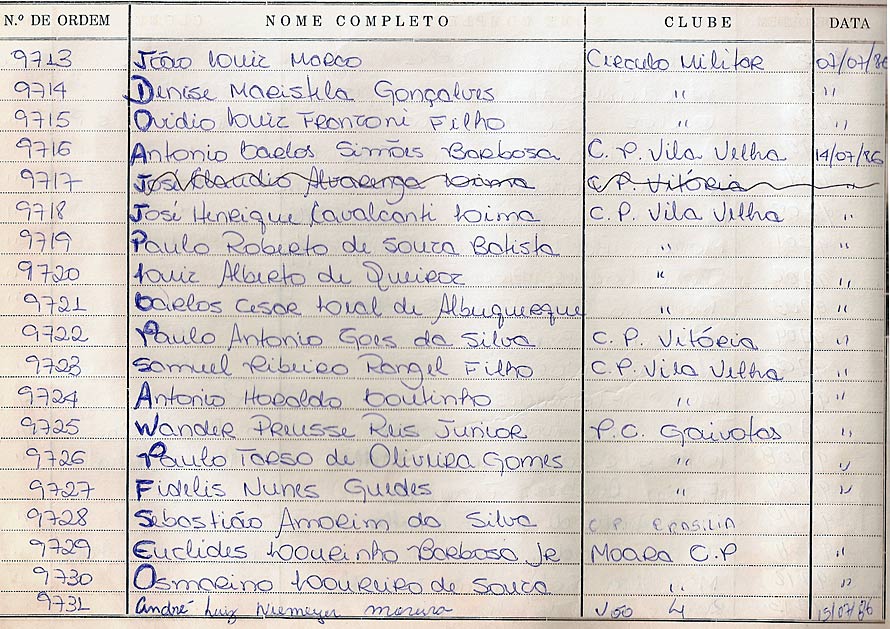 N.º DE ORDEM NOME COMPLETO CLUBE DATA
9713 João Luiz Marco Circulo Militar 07/07/86
9714 Denise Maristela Gonçalves " "
9715 Ovidio Luiz Franzoni Filho " "
9716 Antonio Carlos Simões Barbosa C. P. Vila Velha 14/07/86
9717 José Claudio Alvarenga Lima C P. Vitória "
9718 José Henrique Cavalcanti Lima C. P. Vila Velha "
9719 Paulo Roberto de Souza Batista " "
9720 Luiz Alberto de Queiroz " "
9721 Carlos Cesar Loral de Albuquerque " "
9722 Paulo Antonio Goes da Silva C. P. Vitória "
9723 Samuel Ribeiro Rangel Filho C. P. Vila Velha "
9724 Antonio Haroldo Coutinho " "
9725 Wander Preusse Reis Junior P. C. Gaivotas "
9726 Paulo Tarso de Oliveira Gomes " "
9727 Fidelis Nunes Guedes " "
9728 Sebastião Amorim da Silva C P BRASILIA
9729 Euclides Loureinho Barbosa Jr Moara C. P "
9730 Osmarino Loureiro de Souza " "
9731 André Luiz Niemeyer Moreira Voo 15/07/86